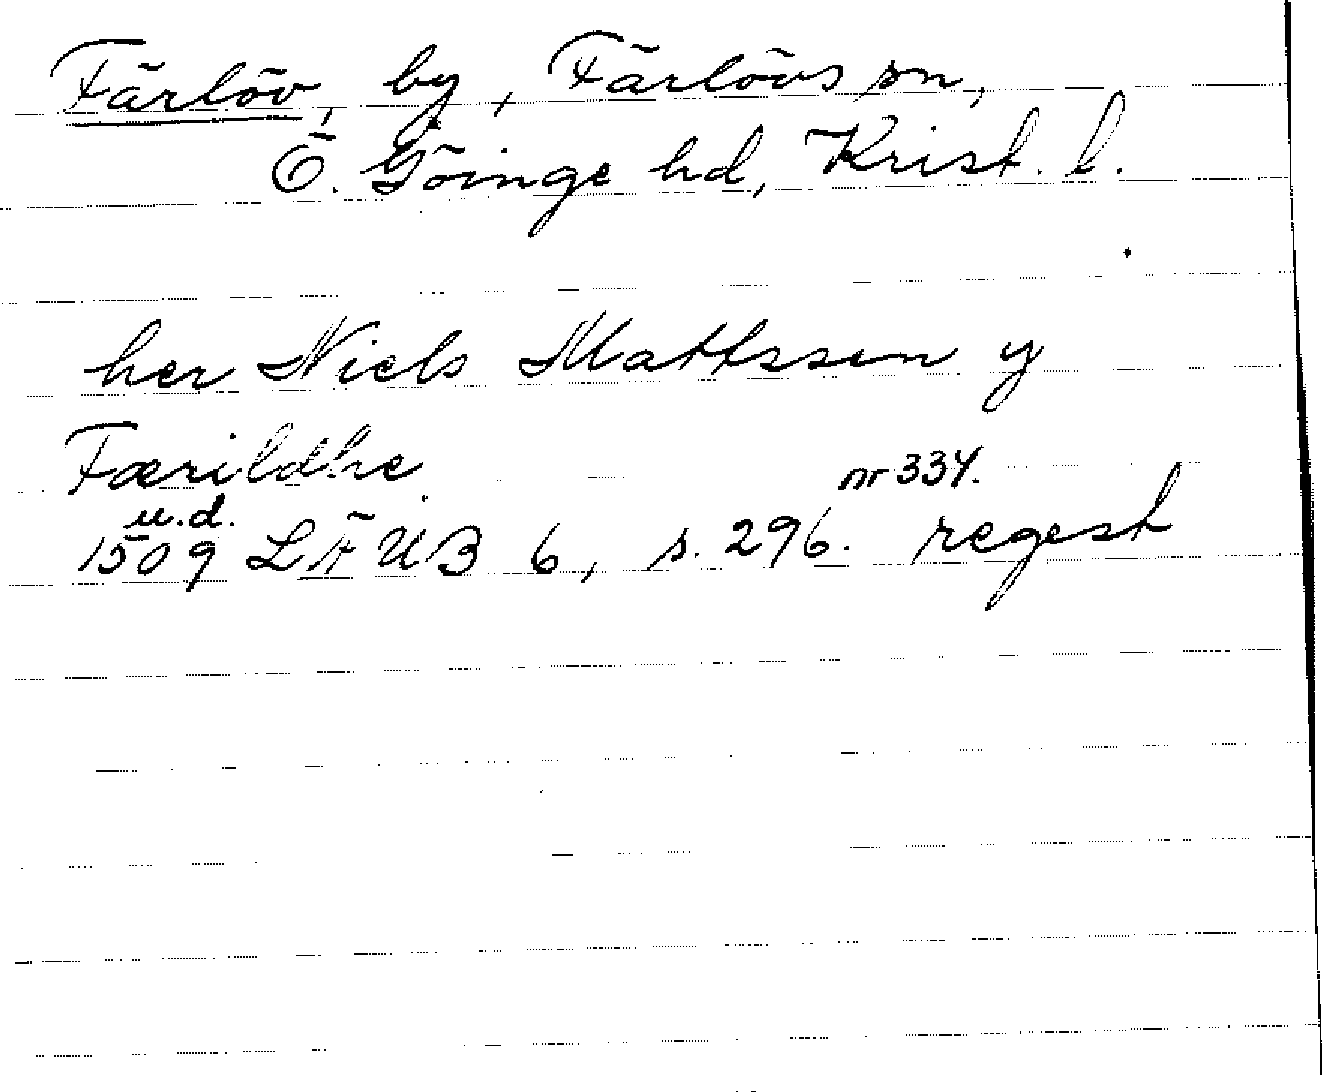 Färlöv, by, Färlövs sn,
Ö. Göinge hd, Krist. l.
her Niels Mattssøn y
Færildhe nr 334.
u.d.
1509 LÄUB 6, s. 296. regest